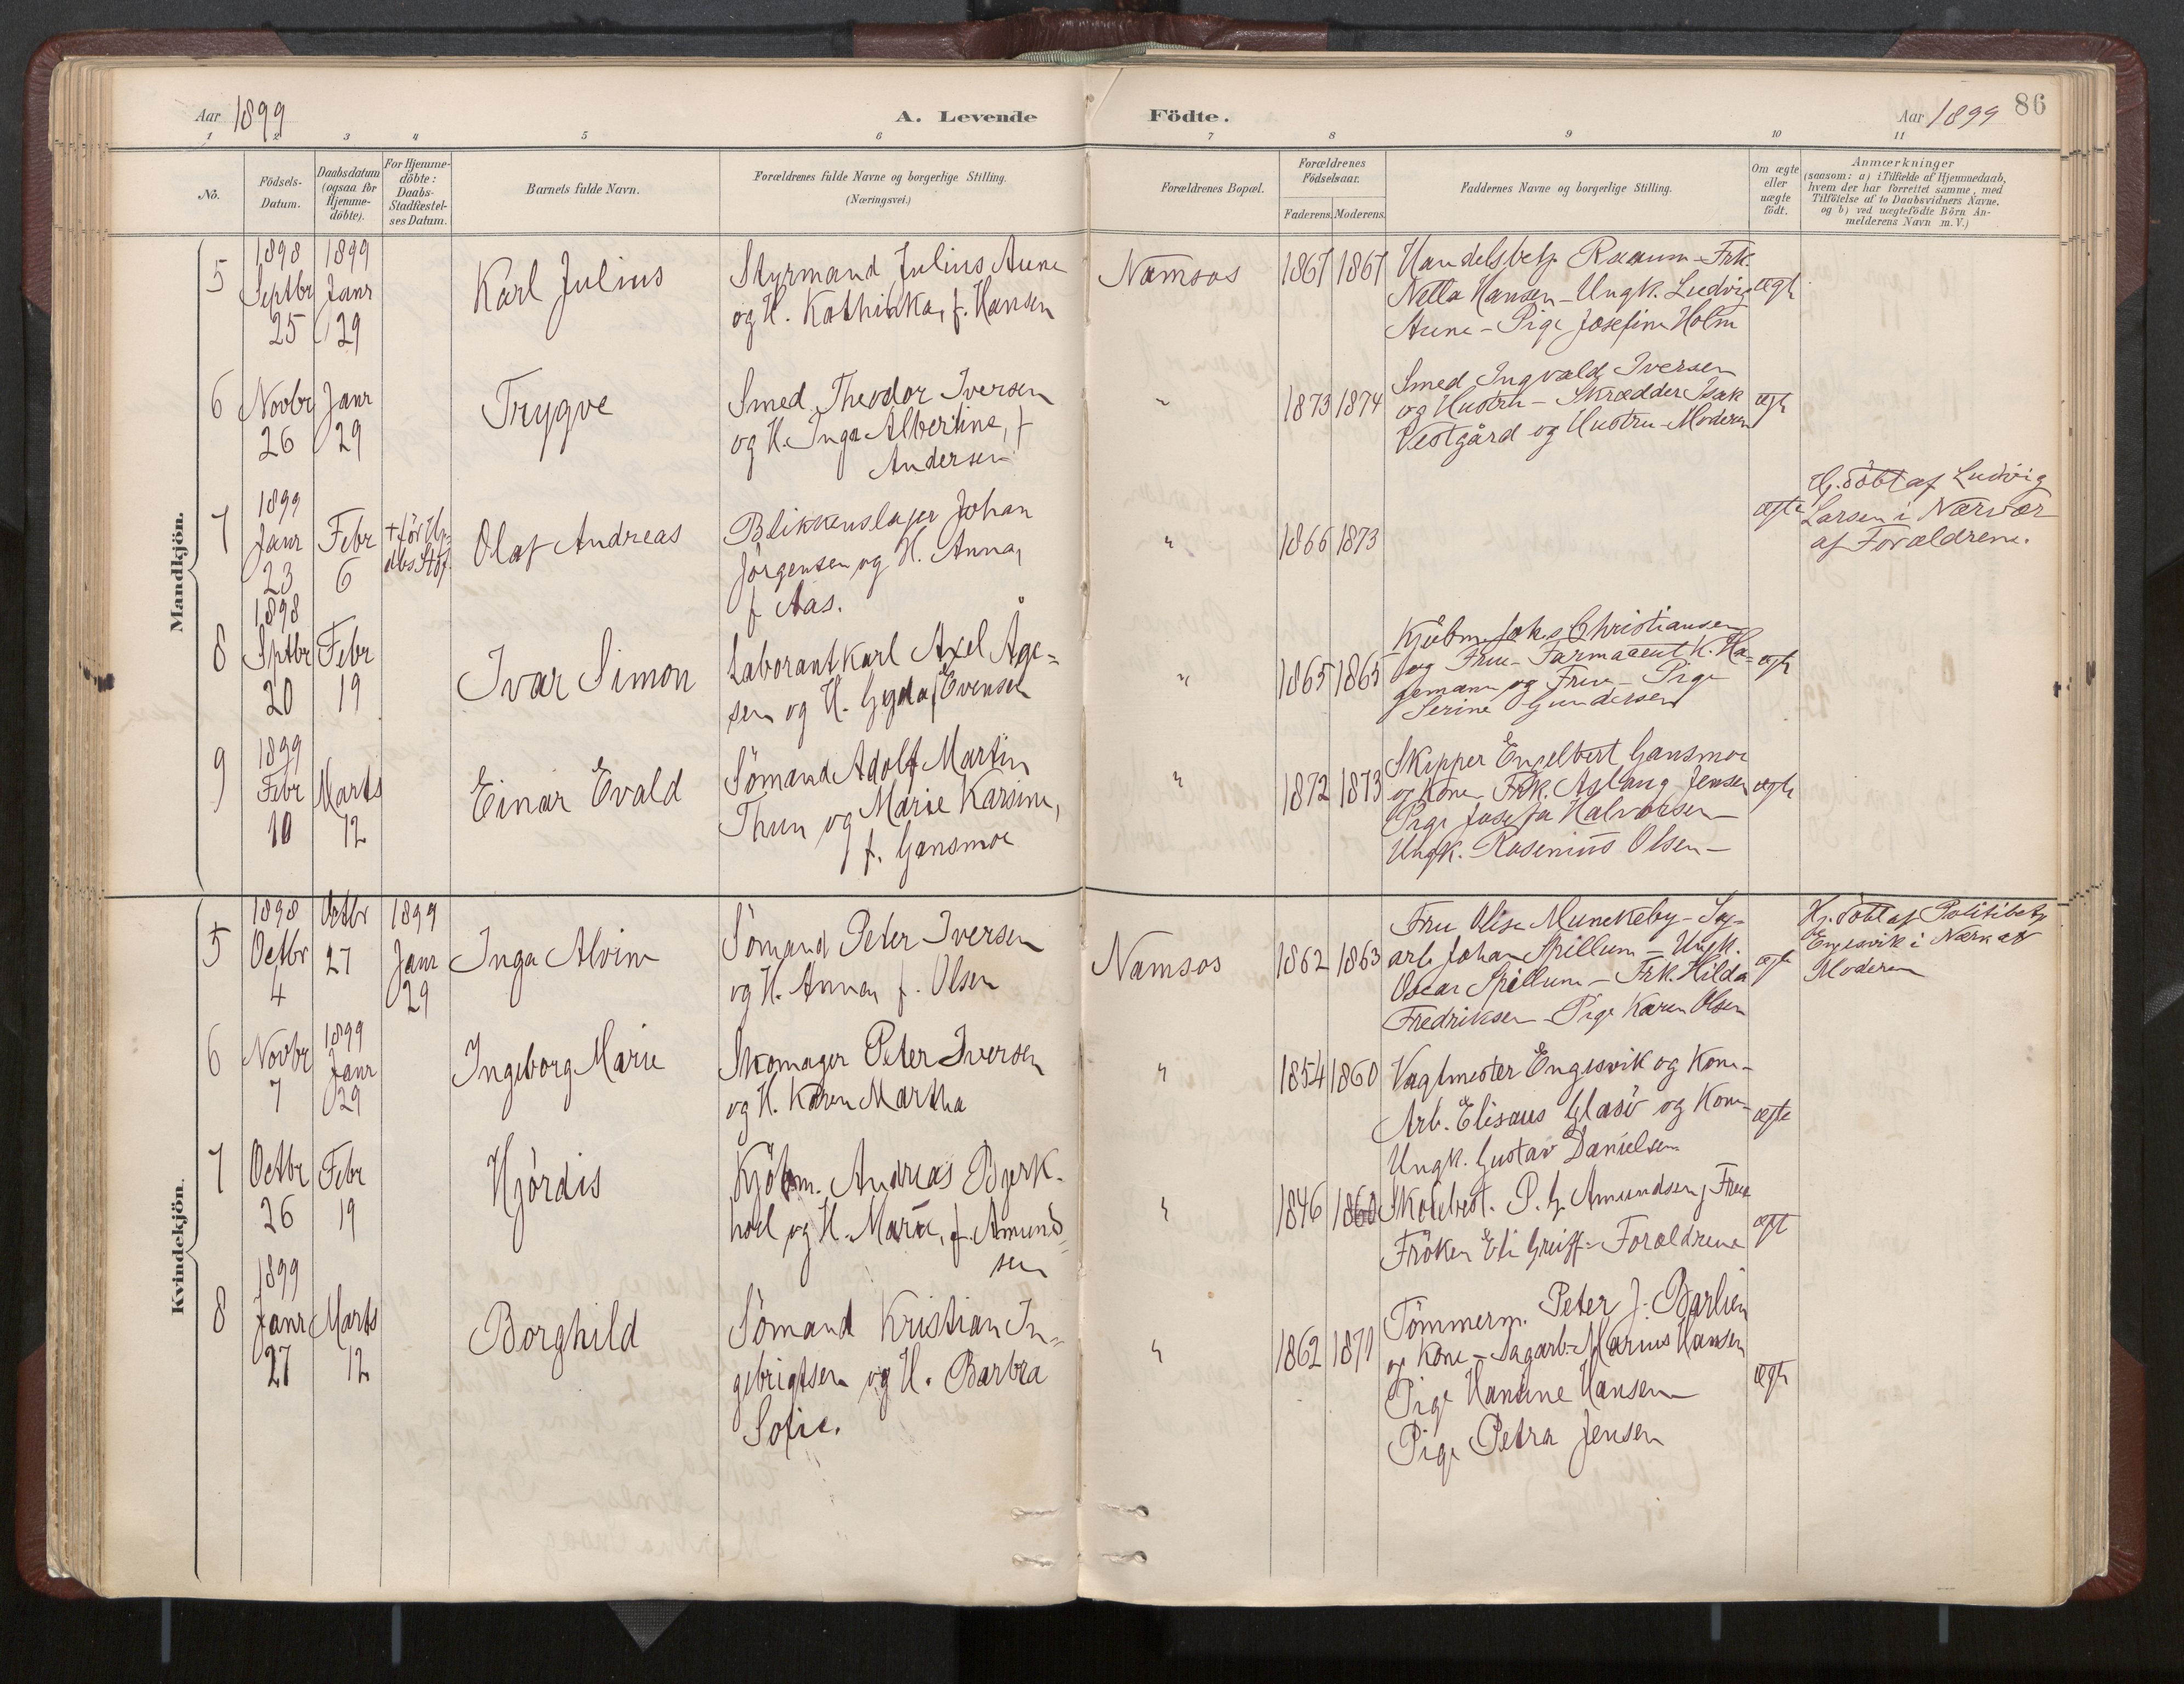 Aar 1899
A. Levende Födte.
Aar 1899 86
1 2 3 4 5 6 7 8 9 10 11
No.
Födsels-
Datum.
Daabsdatum
(ogsaa for
Hjemme-
döbte).
For Hjemme-
döbte:
Daabs-
Stadfæstel-
ses Datum.
Barnets fulde Navn.
Forældrenes fulde Navne og borgerlige Stilling.
(Næringsvei.)
Forældrenes Bopæl.
Forældrenes
Födselsaar.
Faderens. Moderens.
Faddernes Navne og borgerlige Stilling.
Om ægte
eller
uægte
födt.
Anmærkninger
(saasom: a) i Tilfælde af Hjemmedaab,
hvem der har forrettet samme, med
Tilföielse af to Daabsvidners Navne,
og b) ved uægtefödte Börn An-
melderens Navn m. V.)
Mandkjön.
5
1898
Septbr
25
1899
Janr
29
Karl Julius
Styrmand Julius Aune
og H. Kathinka, f. Hansen
Namsos
1867 1867
Handelsbetj. - Frk.
Hansen - Ungk. Ludvig
Aune - Pige Josefine Holm
ægte
6
Novbr
26
Janr
29
Trygve
Smed Theodor Iversen
og H. Inga Albertine, f
Andersen
"
1873 1874
Smed Ingvald Iversen
og Hustru - Skrædder Isak
Vestgård og Hustru - Moderen
ægte
7
1899
Janr
23
Febr
6
+ för
Olaf Andreas
Blikkenslager Johan
Jörgensen og H. Anna,
f Aas.
"
1866 1873
ægte
Hj. döbt af Ludvig
Larsen i Nærvær
af Forældrene.
8
1898
Sptbr
20
Febr
19
Ivar Simon
Laborant Karl Axel Åge-
sen og H. Gyda, f Evensen
"
1865 1865
Kjöbm. Christiansen
og Frue - Farmaceut K. Ha-
gemann og Frue - Pige
Serine Gundersen
ægte
9
1899
Febr
10
Marts
12
Einar Evald
Sömand Adolf Martin
Thun og Marie Karsine,
f. Gansmoe
"
1872 1873
Skipper Engelbert Gansmoe
og Kone - Frk. Aslaug Jensen
Pige Josefa Halvorsen -
Ungk. Rasenius Olsen -
ægte
Kvindekjön.
5
1898
Octbr
4
Octbr
27
1899
Janr
29
Inga Alvine
Sömand Peter Iversen
og H. Anna, f. Olsen
Namsos
1862 1863
Fru Olise Munkeby - Sag-
arb Johan Spillum - Ungk.
Oscar Spillum - Frk. Hilda
Fredriksen - Pige Karen Olsen
ægte
Hj. döbt af Politibetj
Engesvik i Nærv af
Moderen
6
Novbr
7
1899
Janr
29
Ingeborg Marie
Skomager Peter Iversen
og H. Karen Martha
"
1854 1860
Vagtmester Engesvik og Kone -
Arb. Elisæus Glasö og Kone -
Ungk. Gustav Danielsen
ægte
7
Octbr
26
Febr
19
Hjördis
Kjöbm. Andreas Bjerk-
hoel og H. Marie, f. Amund-
sen
"
1846 1860
Skolebest. P. G. Amundsen, Frue
Fröken Eli Greiff - Forældrene
ægte
8
1899
Janr
27
Marts
12
Borghild
Sömand Kristian In-
gebrigtsen og H. Barbra
Sofie.
"
1862 1871
Tömmerm. Peter J. Barlien
og Kone - Sagarb. Marius Hansen
Pige Hansine Hansen
Pige Petra Jensen
ægte